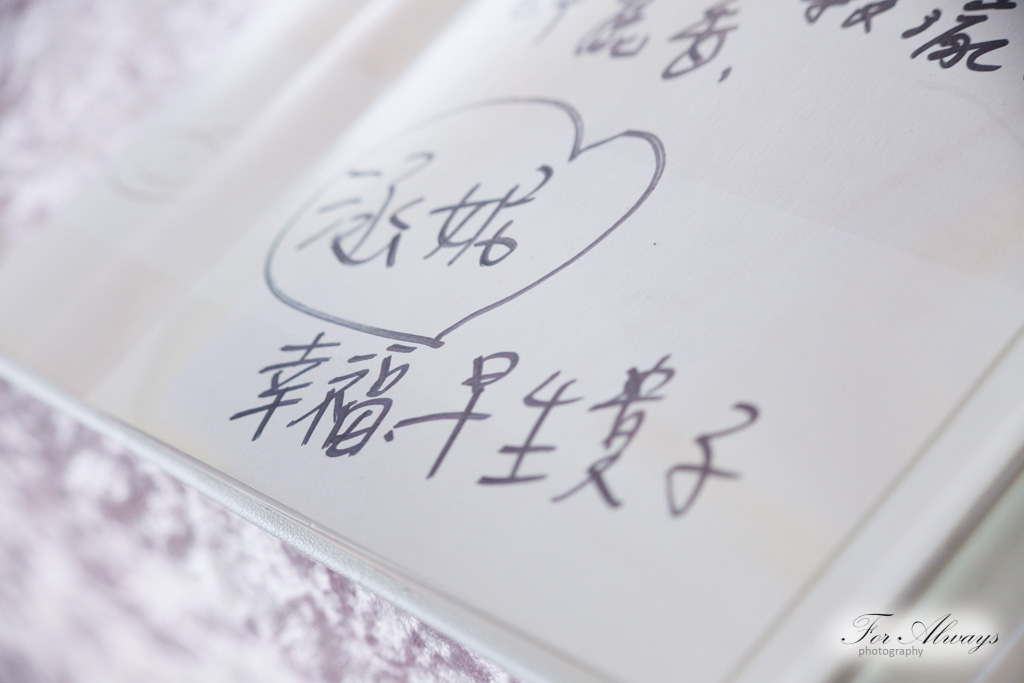 涵姑
幸福.早生貴子
For Always
photography